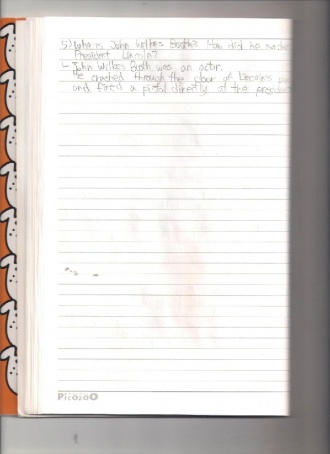 5) Who is John Wilkes Booth? How did he
President Lincoln?
└ John Wilkes Booth was an actor.
He crashed through the door of Lincoln's
and fired a pistol directly at the
PicozoO